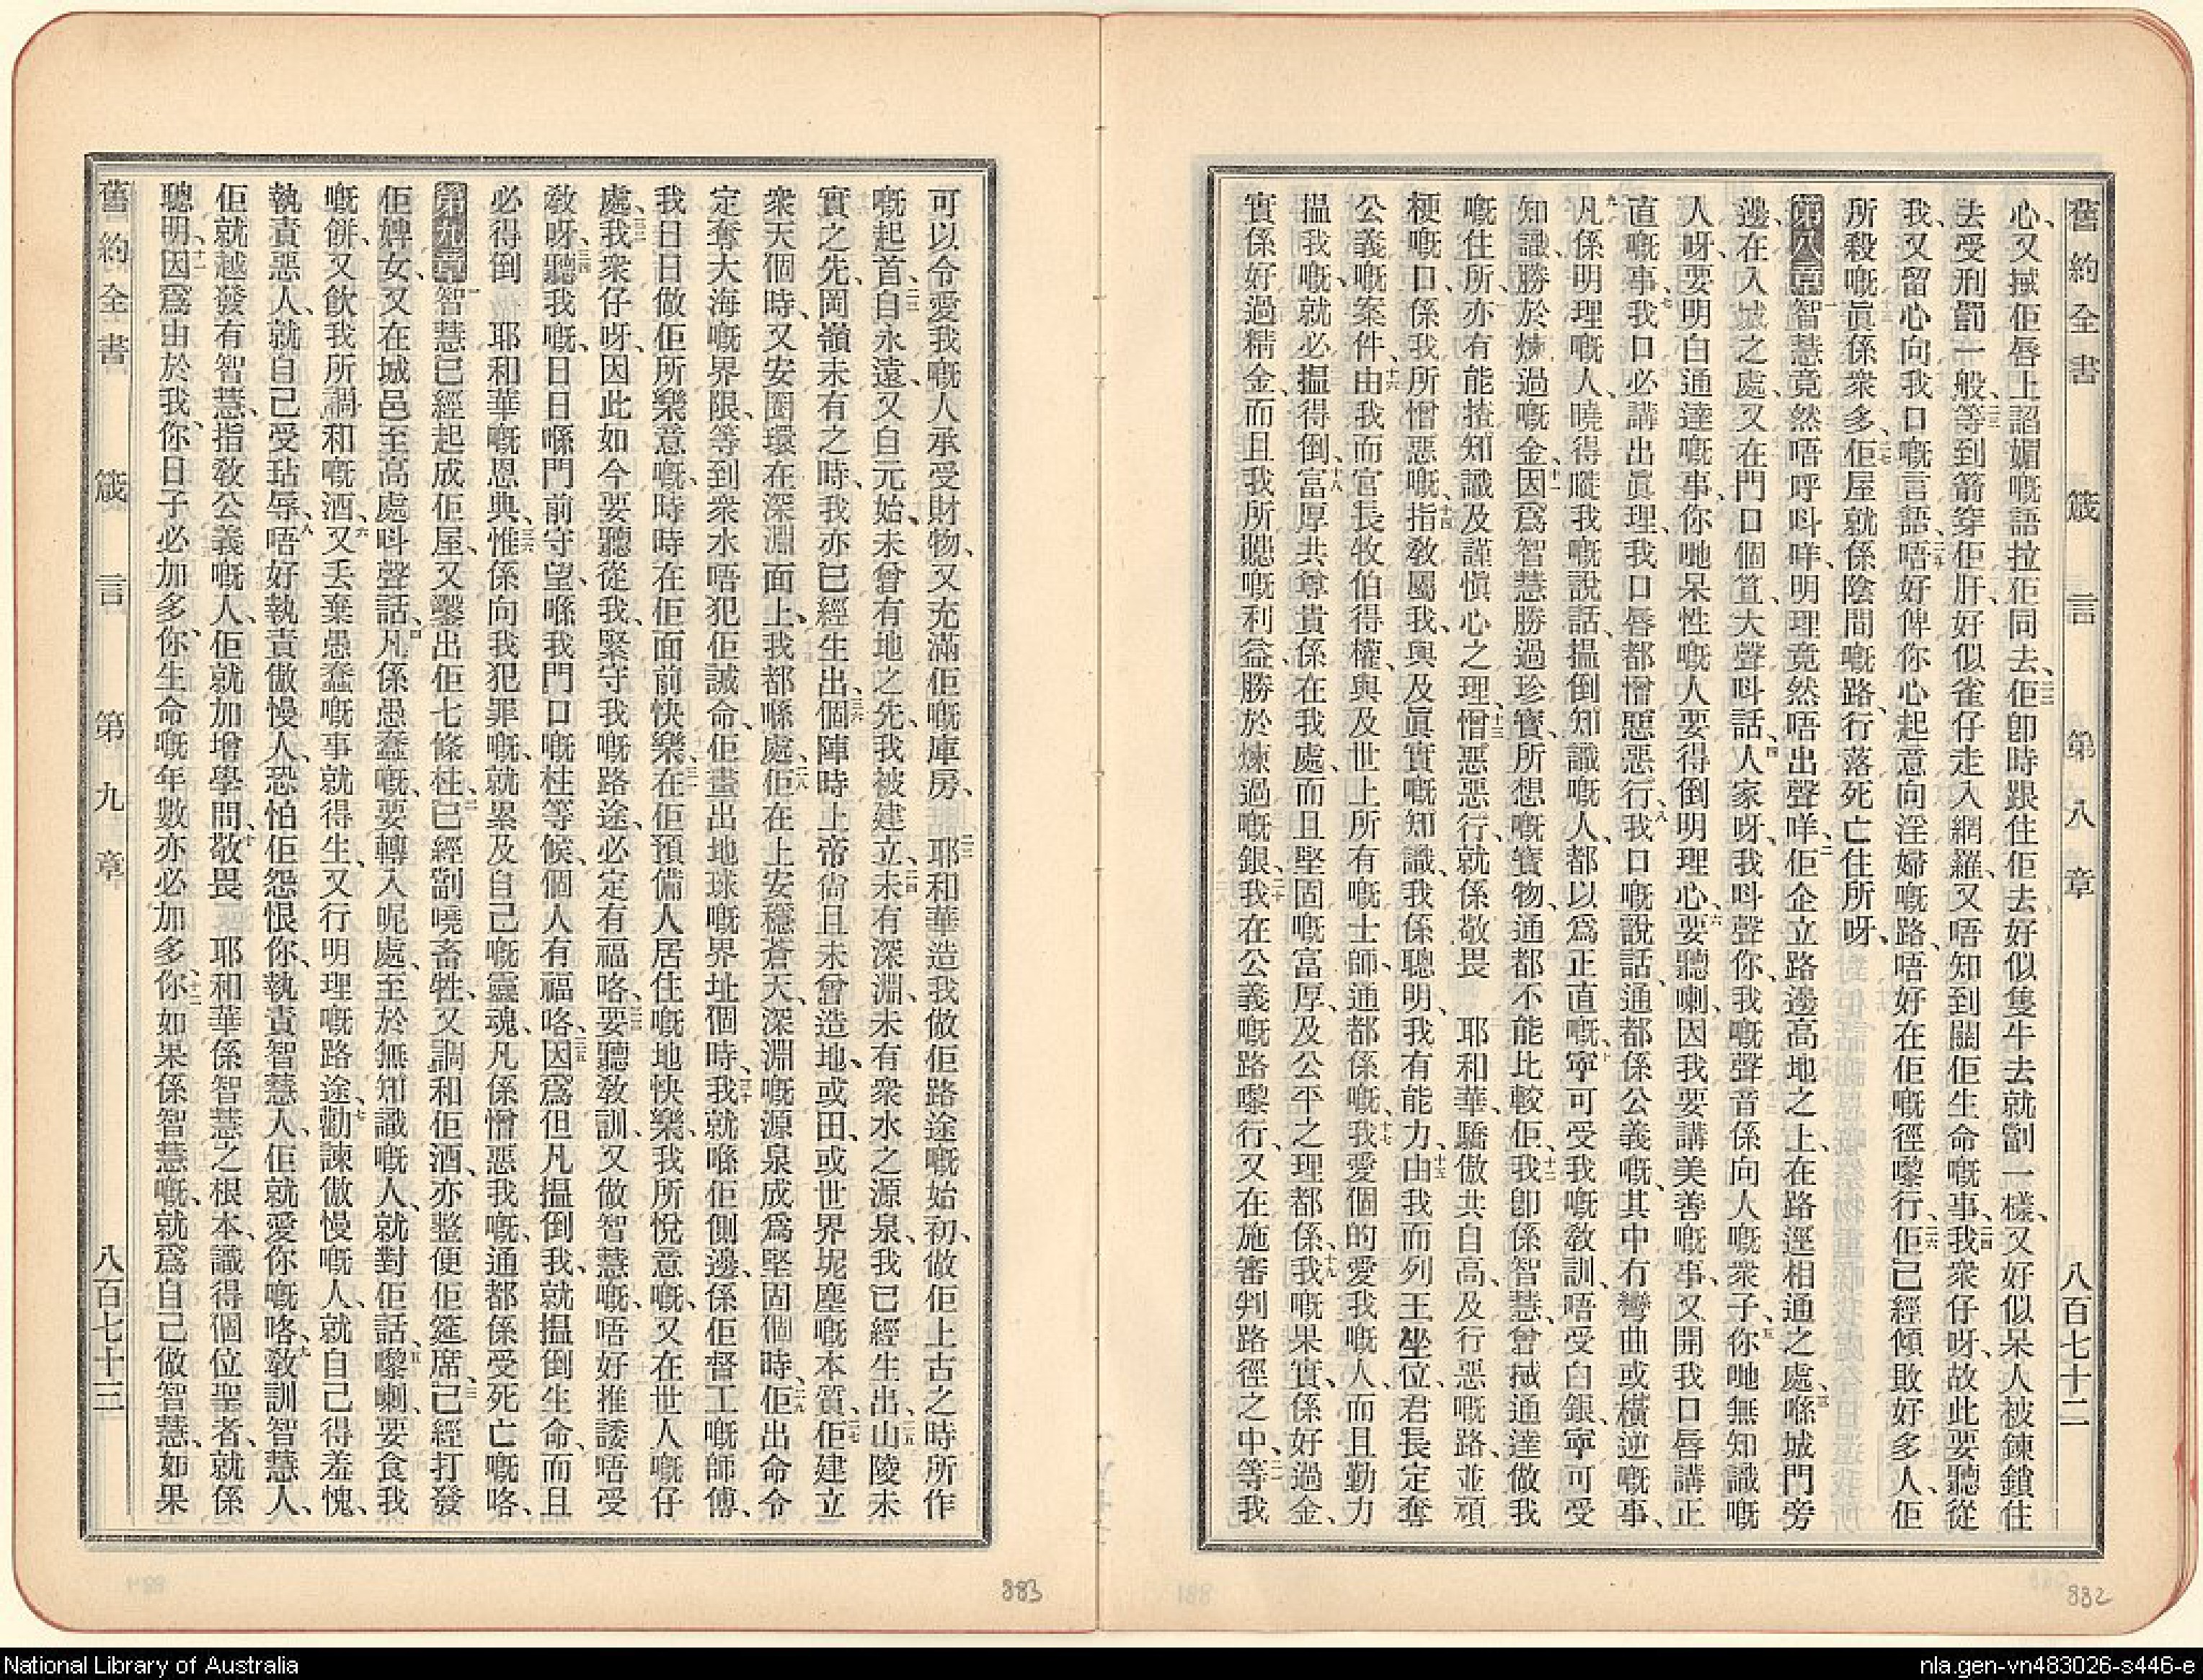 舊約全書 箴言 第八章 八百七十二
心、又掝佢唇上謟媚嘅語拉佢同去、二二佢卽時跟住佢去、好似隻牛去就劏一樣、又好似呆人被鍊鎖住
去受刑罰一般、二三等到箭穿佢肝、好似雀仔走入網羅、又唔知到關佢生命嘅事、二四我衆仔呀、故此要聽從
我、又留心向我口嘅言語、二五唔好俾你心起意向淫婦嘅路、唔好在佢嘅徑嚟行、二六佢已經傾敗好多人、佢
所殺嘅眞係衆多、二七佢屋就係陰間嘅路、行落死亡住所呀、
第八章 一智慧竟然唔呼呌咩、明理竟然唔出聲咩、二佢企立路邊高地之上、在路逕相通之處、三喺城門旁
邊、在入城之處、又在門口個笪、大聲呌話、四人家呀、我呌聲你、我嘅聲音係向人嘅衆子、五你哋無知識嘅
人呀、要明白通達嘅事、你哋呆性嘅人要得倒明理心、六要聽喇、因我要講美善嘅事、又開我口唇講正
直嘅事、七我口必講出眞理、我口唇都憎惡惡行、八我口嘅說話、通都係公義嘅、其中冇彎曲或橫逆嘅事、
九凡係明理嘅人、曉得嚨我嘅說話、搵倒知識嘅人、都以爲正直嘅、十寧可受我嘅敎訓、唔受白銀、寧可受
知識、勝於煉過嘅金、十一因爲智慧勝過珍寶、所想嘅寶物、通都不能比較佢、十二我卽係智慧、曾掝通達做我
嘅住所、亦有能揸知識及謹愼心之理、十三憎惡惡行、就係敬畏 耶和華、驕傲共自高、及行惡嘅路、並頑
梗嘅口、係我所憎惡嘅、十四指敎屬我、與及眞實嘅知識、我係聰明、我有能力、十五由我而列王坐位、君長定奪
公義嘅案件、十六由我而官長牧伯得權、與及世上所有嘅士師、通都係嘅、十七我愛個的愛我嘅人、而且勤力
搵我嘅、就必搵得倒、十八富厚共尊貴係在我處、而且堅固嘅富厚、及公平之理都係、十九我嘅果實、係好過金、
實係好過精金、而且我所聽嘅利益、勝於煉過嘅銀、二十我在公義嘅路嚟行、又在施審判路徑之中、二一等我
882
可以令愛我嘅人承受財物、又充滿佢嘅庫房、 二二耶和華造我做佢路途嘅始初、做佢上古之時所作
嘅起首、二三自永遠、又自元始、未曾有地之先、我被建立、二四未有深淵、未有衆水之源泉、我已經生出、二五山陵未
實之先、岡嶺未有之時、我亦已經生出、二六個陣時上帝尙且未曾造地、或田、或世界坭塵嘅本質、二七佢建立
衆天個時、又安圈環在深淵面上、我都喺處、二八佢在上安穩蒼天、深淵嘅源泉成爲堅固個時、二九佢出命令
定奪大海嘅界限、等到衆水唔犯佢誡命、佢畫出地球嘅界址個時、三十我就喺佢側邊、係佢督工嘅師傅、
我日日做佢所樂意嘅、時時在佢面前快樂、三一在佢預備人居住嘅地快樂、我所悅意嘅、又在世人嘅仔
處、三二我衆仔呀、因此如今要聽從我、緊守我嘅路途、必定有福咯、三三要聽敎訓、又做智慧嘅、唔好推諉唔受
敎呀、三四聽我嘅、日日喺門前守望、喺我門口嘅柱等候、個人有福咯、三五因爲但凡搵倒我、就搵倒生命、而且
必得倒 耶和華嘅恩典、三六惟係向我犯罪嘅、就累及自己嘅靈魂、凡係憎惡我嘅、通都係受死亡嘅咯、
第九章 一智慧已經起成佢屋、又鑿出佢七條柱、二已經劏曉畜牲、又調和佢酒、亦整便佢筵席、三已經打發
佢婢女、又在城邑至高處呌聲話、四凡係愚蠢嘅、要轉入呢處、至於無知識嘅人、就對佢話、五嚟喇、要食我
嘅餅、又飲我所調和嘅酒、六又丢棄愚蠢嘅事就得生、又行明理嘅路途、七勸諫傲慢嘅人、就自己得羞愧、
執責惡人、就自己受玷辱、八唔好執責傲慢人、恐怕佢怨恨你、執責智慧人、佢就愛你嘅咯、九敎訓智慧人、
佢就越發有智慧、指敎公義嘅人、佢就加增學問、十敬畏 耶和華係智慧之根本、識得個位聖者、就係
聰明、十一因爲由於我、你日子必加多、你生命嘅年數亦必加多、十二你如果係智慧嘅、就爲自己做智慧、如果
舊約全書 箴言 第九章 八百七十三
883
National Library of Australia
nla.gen-vn483026-s446-e